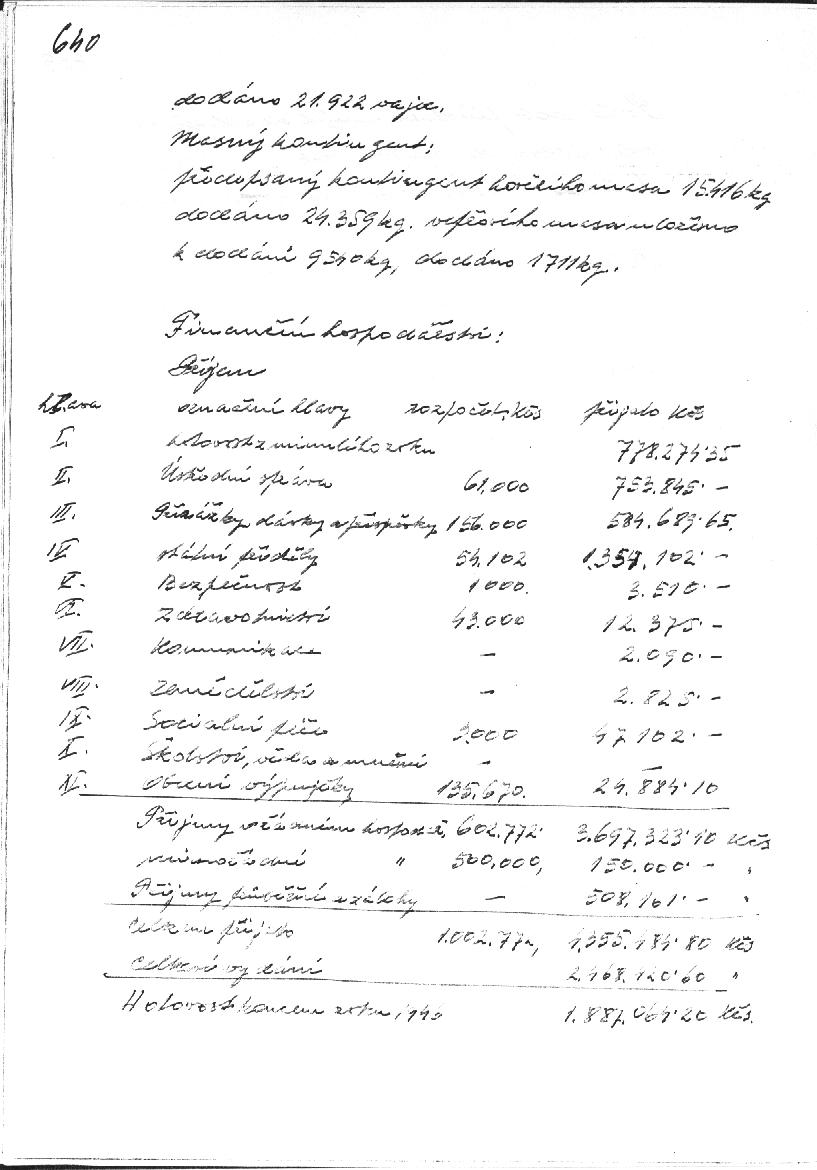 640
dodáno 21.922 vajec.
Masný kontingent:
předepsaný kontingent hovězího masa 15.416 kg
dodáno 24.359 kg. vepřového masa uloženo
k dodání 9540 kg, dodáno 1711 kg.
Finanční hospodářství:
Příjem
hlava označení hlavy rozpočet, Kčs přijato Kčs
I. hotovost z minulého roku 778.274·35
II. Ústřední správa 61,000 753.845·–
III. Přirážky, dávky a příspěvky 156.000 584.689·65.
IV státní příděly 54,102 1,354,102·–
V. Bezpečnost 1000. 3.510·–
VI. Zdravotnictví 43.000 12.375·–
VII. Komunikace – 2.090·–
VIII. Zemědělství – 2.825·–
IX. Sociální péče 3,000 47.102·–
X. Školství, věda a umění – –
XI. Obecní výpujčky 135.670. 24.884·10
Příjmy v řádném hospodař. 602.772· 3.697,323·10 Kčs
mimořádné " 500.000, 150.000·– "
Příjmy průběžné a zálohy – 508,161·– "
Celkem přijato 1.002.772, 4,355.184·80 Kčs
Celkové vydání 2,468.120·60 "
Hotovost koncem roku 1946 1.887.064·20 Kčs.